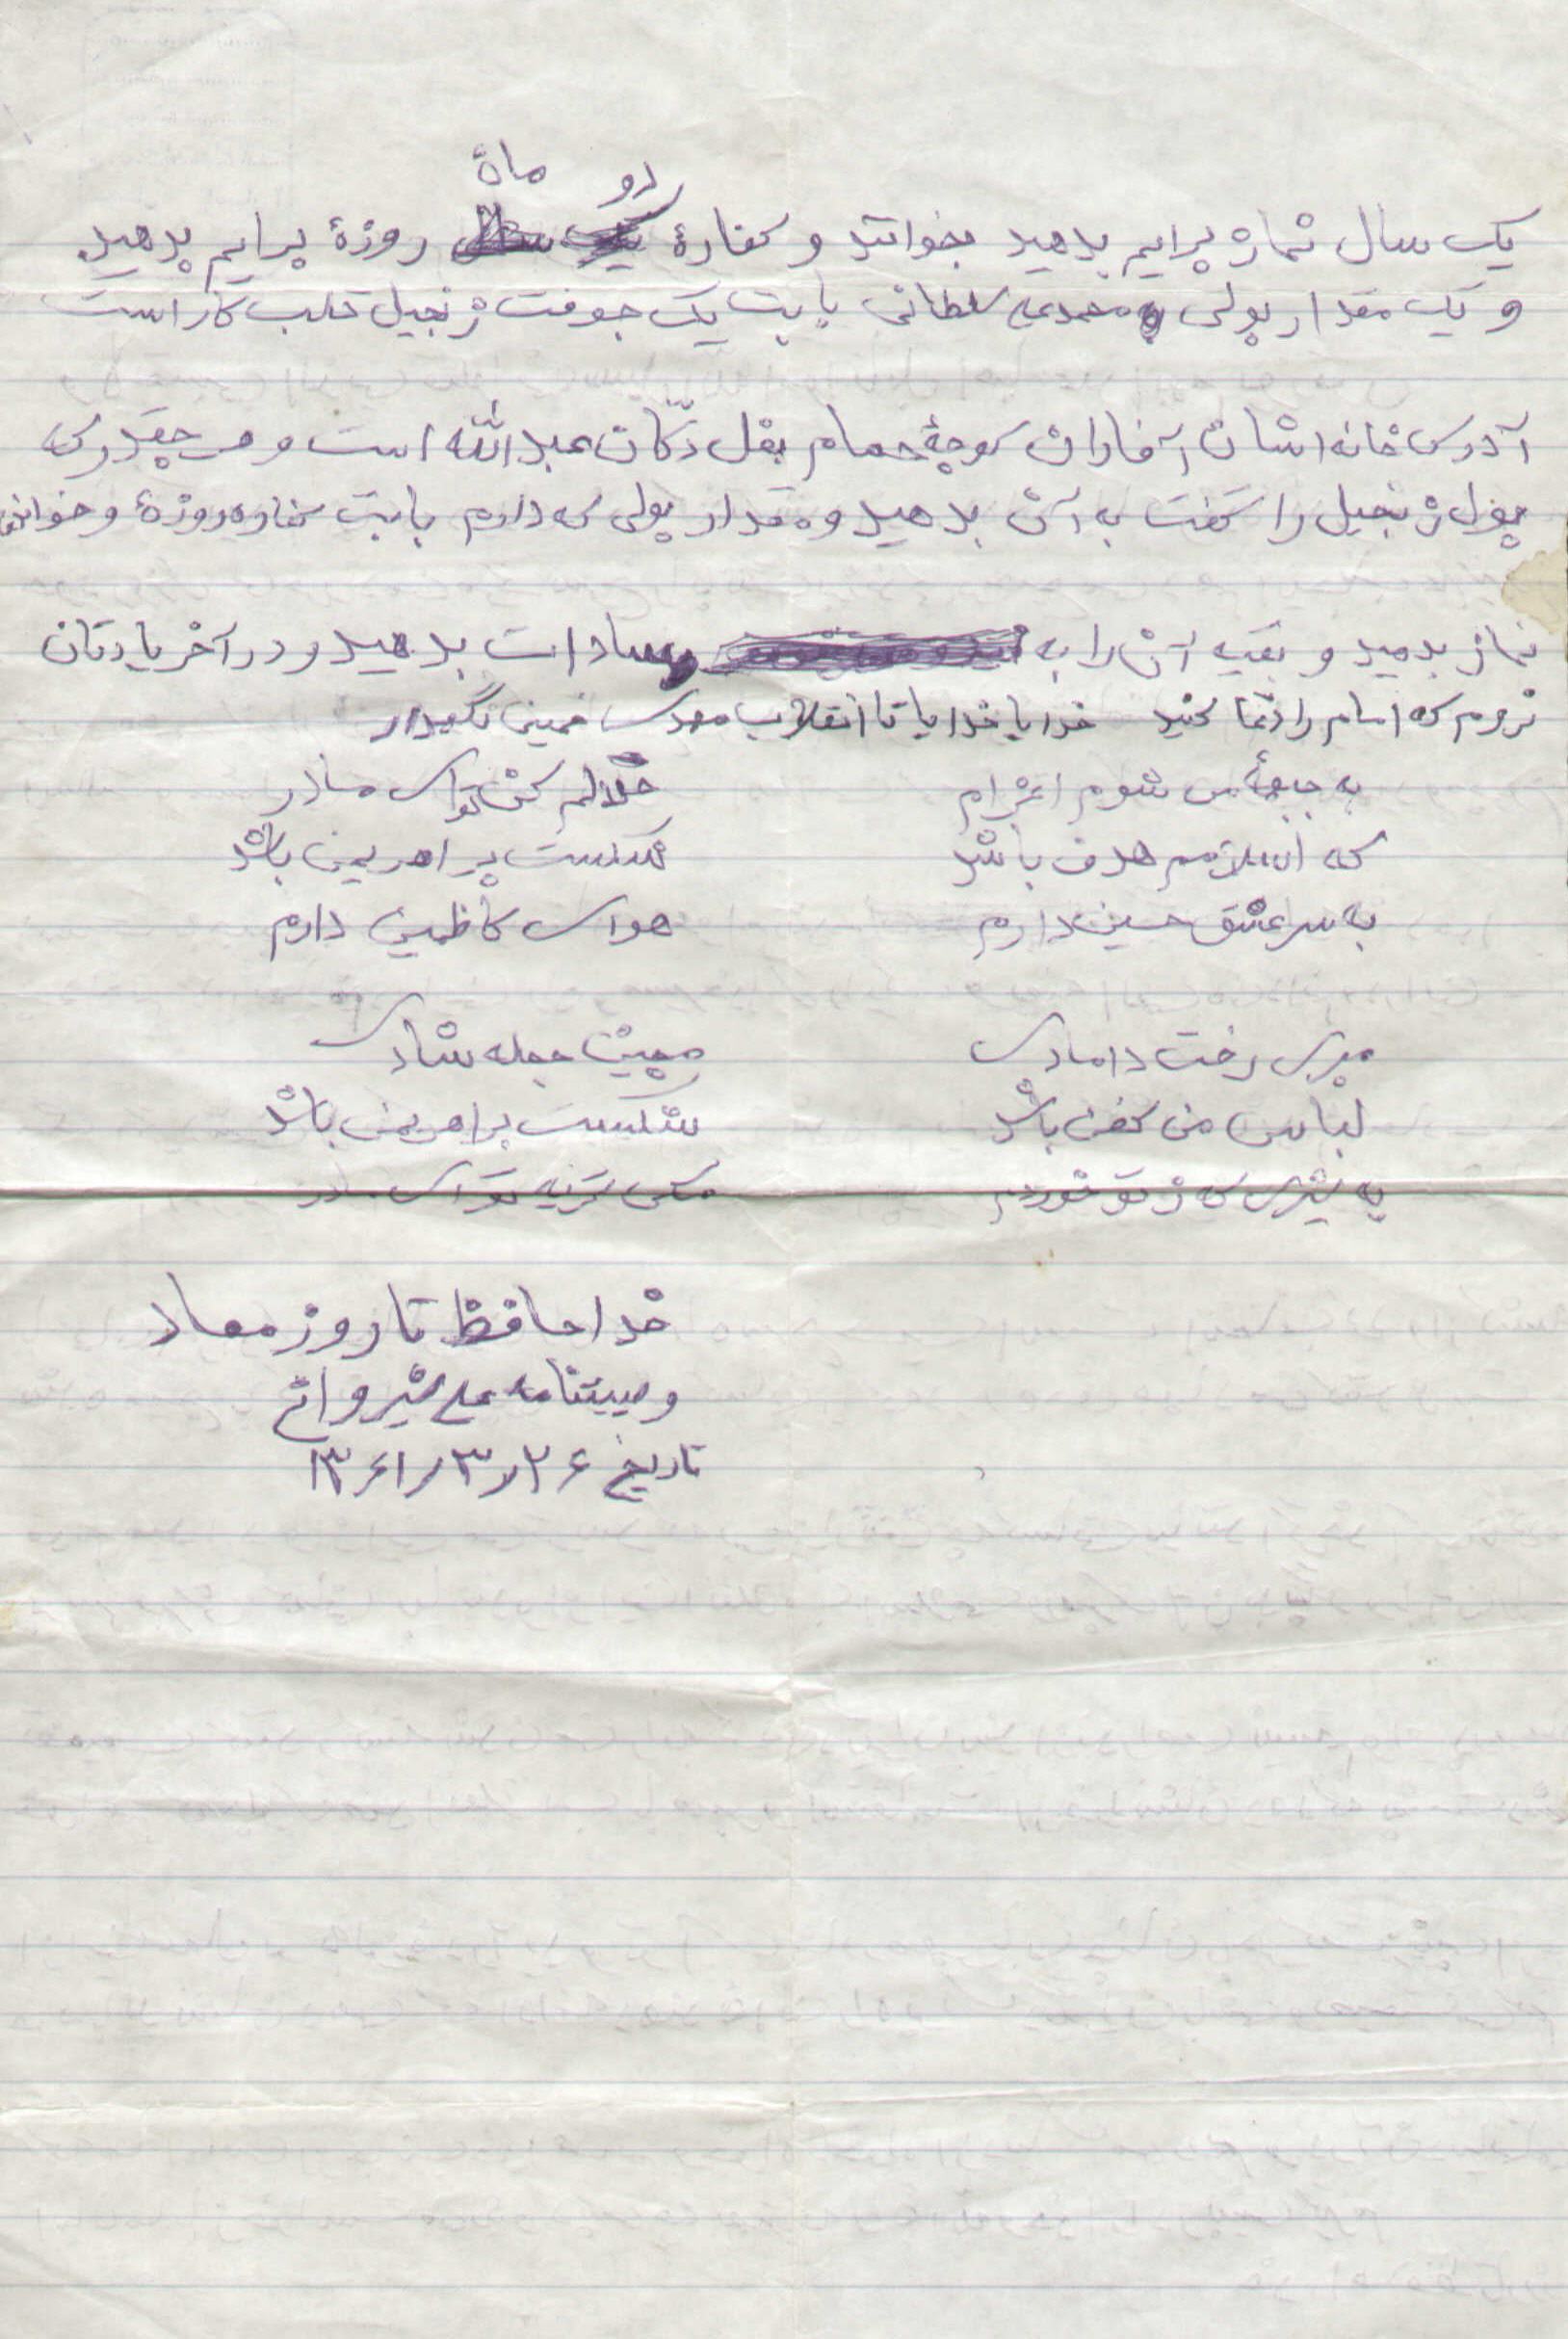 دو ماه
یک سال نماز برایم بدهید بخوانند و کفارهٔ روزهٔ برایم بدهید
و یک مقدار پولی به محمدعلی سلطانی بابت یک جوفت زنجیل قلب کار است
آدرس خانه اشان آفاران کوچهٔ حمام بقل دکّان عبدالله است و هر چقدر که
پول زنجیل را گفت به آن بدهید و مقدار پولی که دارم بابت کفاره روزهٔ و خواندن
نماز بدهید و بقیه آن را به سادات بدهید و در آخر یادتان
نروم که امام را دعا کنید خدایا خدایا تا انقلاب مهدی خمینی نگهدار
به جبههٔ می شوم اعزام حلالم کن تو ای مادر
که اسلام هدف باشد شکست بر اهریمن باشد
به سر عشق حسین دارم هوای کاظمین دارم
مبر رخت دامادی مچین حجله شادی
لباس من کفن باشد شکست بر اهریمن باشد
به شیری که ز تو خوردم مکن گریه تو ای مادر
خداحافظ تا روز معاد
وصیتنامه علی شیروانی
تاریخ ۱۳۶۱/۳/۲۶